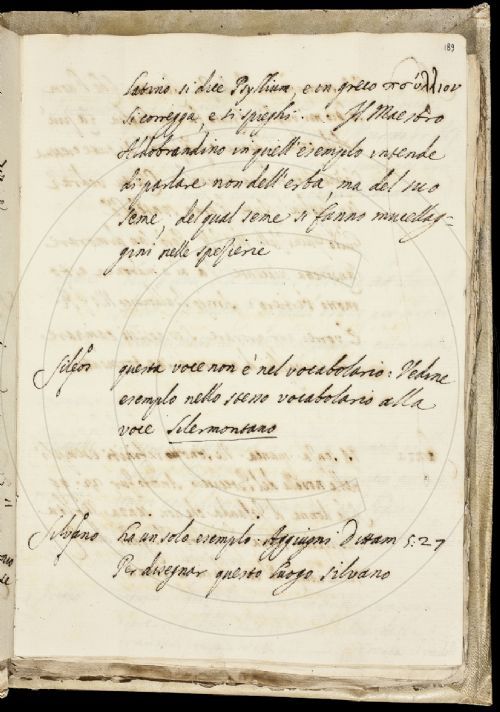 189
latino si dice Psyllium, e in greco ψύλλιον
si corregga, e si spieghi. Il Maestro
Aldobrandino in quell'esempio intende
di parlare non dell'erba, ma del suo
seme, del qual seme si fanno mucellag-
gini nelle spezierie
questa voce non è nel vocabolario: Vedine
esempio nello stesso vocabolario alla
voce Silermontano
Silvano ha un solo esempio: Aggiugni: Dittam 5:27
Per disegnar questo luogo silvano